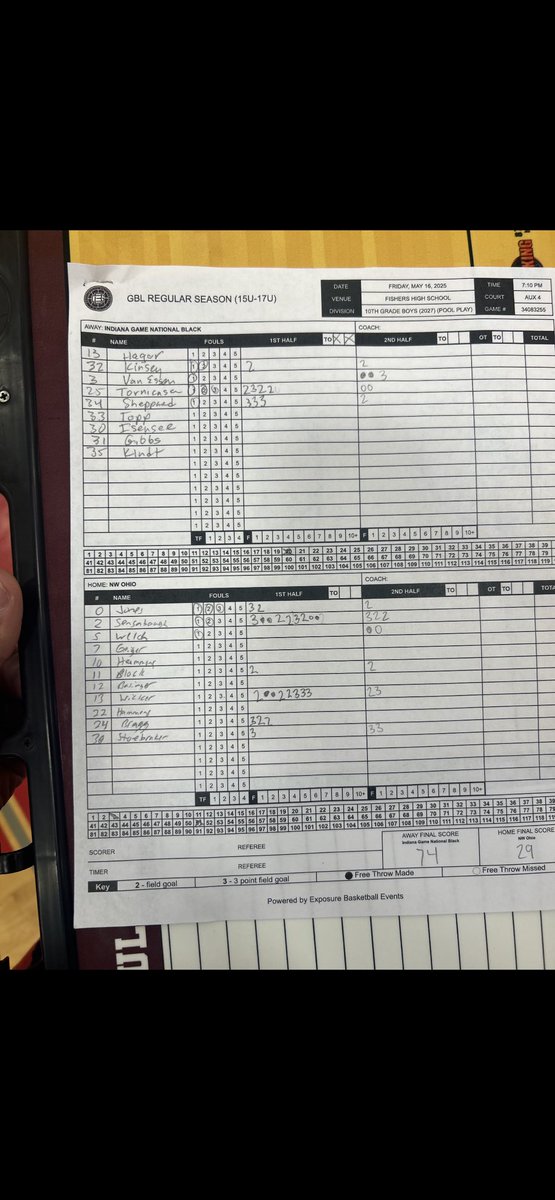 GBL REGULAR SEASON (15U-17U)
DATE FRIDAY, MAY 16, 2025 TIME 7:10 PM
VENUE FISHERS HIGH SCHOOL COURT AUX 4
DIVISION 10TH GRADE BOYS (2027) (POOL PLAY) GAME # 34083255
AWAY: INDIANA GAME NATIONAL BLACK COACH:
# NAME FOULS 1ST HALF TO X X 2ND HALF TO OT TO TOTAL
13 1 2 3 4 5
32 Kinsey 1 2 3 4 5 2 2
3 Van Essen 1 2 3 4 5 ●● 3
25 1 2 3 4 5 2322 00
34 Sheppard 1 2 3 4 5 333 2
33 Topp 1 2 3 4 5
30 Isensee 1 2 3 4 5
31 Gibbs 1 2 3 4 5
35 Kindt 1 2 3 4 5
1 2 3 4 5
1 2 3 4 5
1 2 3 4 5
1 2 3 4 5
1 2 3 4 5
TF 1 2 3 4 F 1 2 3 4 5 6 7 8 9 10+ F 1 2 3 4 5 6 7 8 9 10+
1 2 3 4 5 6 7 8 9 10 11 12 13 14 15 16 17 18 19 20 21 22 23 24 25 26 27 28 29 30 31 32 33 34 35 36 37 38 39
41 42 43 44 45 46 47 48 49 50 51 52 53 54 55 56 57 58 59 60 61 62 63 64 65 66 67 68 69 70 71 72 73 74 75 76 77 78 79
81 82 83 84 85 86 87 88 89 90 91 92 93 94 95 96 97 98 99 100 101 102 103 104 105 106 107 108 109 110 111 112 113 114 115 116 117 118 119
HOME: NW OHIO COACH:
# NAME FOULS 1ST HALF TO 2ND HALF TO OT TO TOTA
0 Jones 1 2 3 4 5 32 2
2 Sensabaugh 1 2 3 4 5 3●02273200 322
5 Welch 1 2 3 4 5 ●0
7 1 2 3 4 5
10 1 2 3 4 5
11 Block 1 2 3 4 5 2 2
12 1 2 3 4 5
13 1 2 3 4 5 2●●22333 23
22 1 2 3 4 5
24 Bragg 1 2 3 4 5 322
30 1 2 3 4 5 3 33
1 2 3 4 5
1 2 3 4 5
1 2 3 4 5
1 2 3 4 5
TF 1 2 3 4 F 1 2 3 4 5 6 7 8 9 10+ F 1 2 3 4 5 6 7 8 9 10+
1 2 3 4 5 6 7 8 9 10 11 12 13 14 15 16 17 18 19 20 21 22 23 24 25 26 27 28 29 30 31 32 33 34 35 36 37 38 39
41 42 43 44 45 46 47 48 49 50 51 52 53 54 55 56 57 58 59 60 61 62 63 64 65 66 67 68 69 70 71 72 73 74 75 76 77 78 79
81 82 83 84 85 86 87 88 89 90 91 92 93 94 95 96 97 98 99 100 101 102 103 104 105 106 107 108 109 110 111 112 113 114 115 116 117 118 119
SCORER REFEREE
AWAY FINAL SCORE HOME FINAL SCORE
Indiana Game National Black NW Ohio
74 29
TIMER REFEREE
Key 2 - field goal 3 - 3 point field goal ● Free Throw Made ○ Free Throw Missed
Powered by Exposure Basketball Events
KING
UL